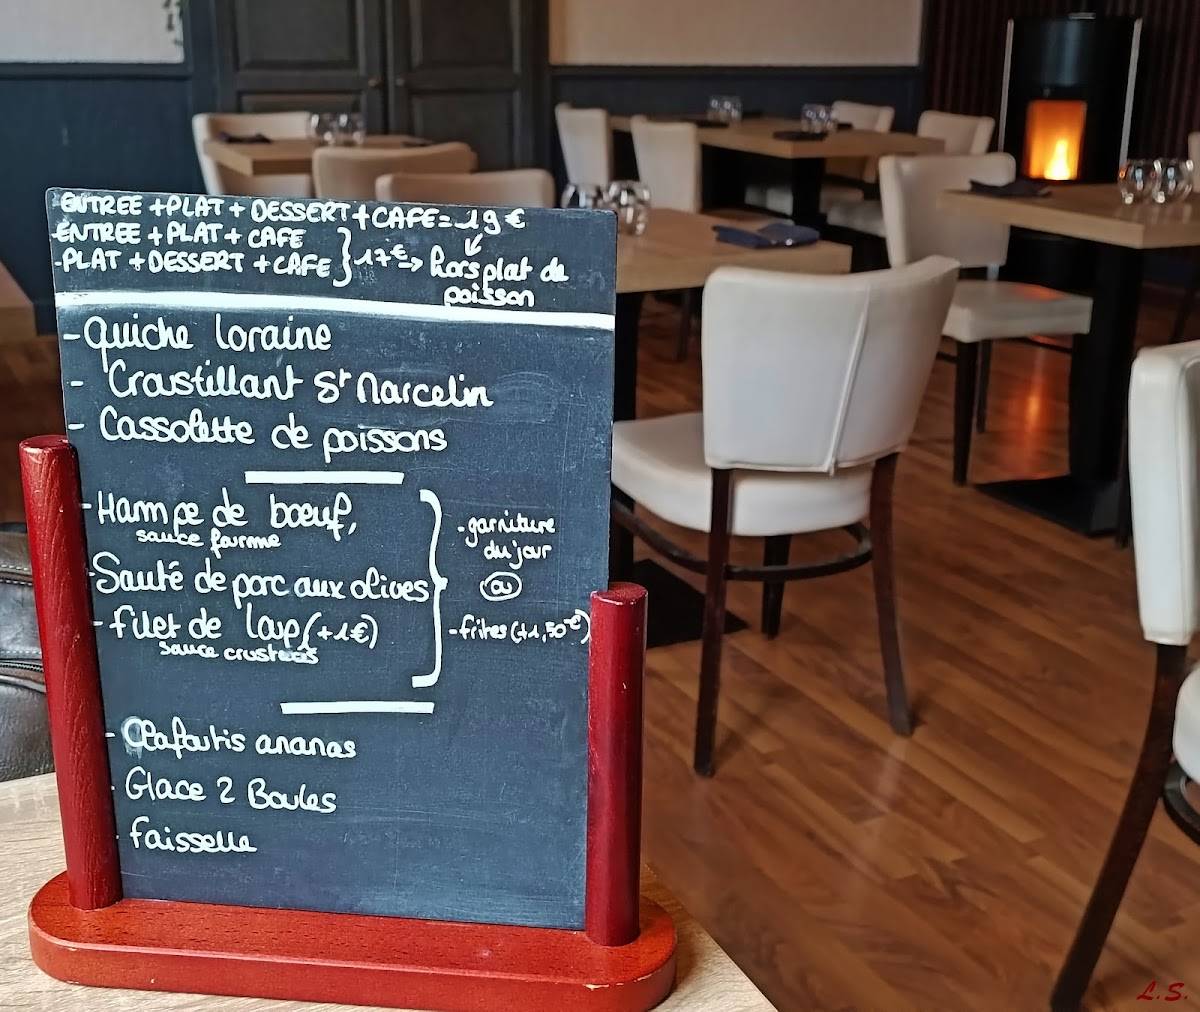 ENTREE + PLAT + DESSERT + CAFE = 19 €
-ENTREE + PLAT + CAFE
-PLAT + DESSERT + CAFE } 17 € → hors plat de
poisson
- Quiche loraine
- Croustillant St Marcelin
- Cassolette de poissons
- Hampe de bœuf,
sauce forme
- Sauté de porc aux olives
- filet de loup (+1€)
sauce crustacés
- garniture
du jour
ou
- frites (+1,50€)
- Clafoutis ananas
- Glace 2 Boules
- faisselle
L.S.